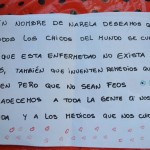 EN NOMBRE DE NARELA DESEAMOS Q
ODOS LOS CHICOS DEL MUNDO SE CU
QUE ESTA ENFERMEDAD NO EXISTA
S, TAMBIÉN QUE INVENTEN REMEDIOS Q
EN PERO QUE NO SEAN FEOS
ADECEMOS A TODA LA GENTE Q NOS
DA Y A LOS MÉDICOS QUE NOS CU